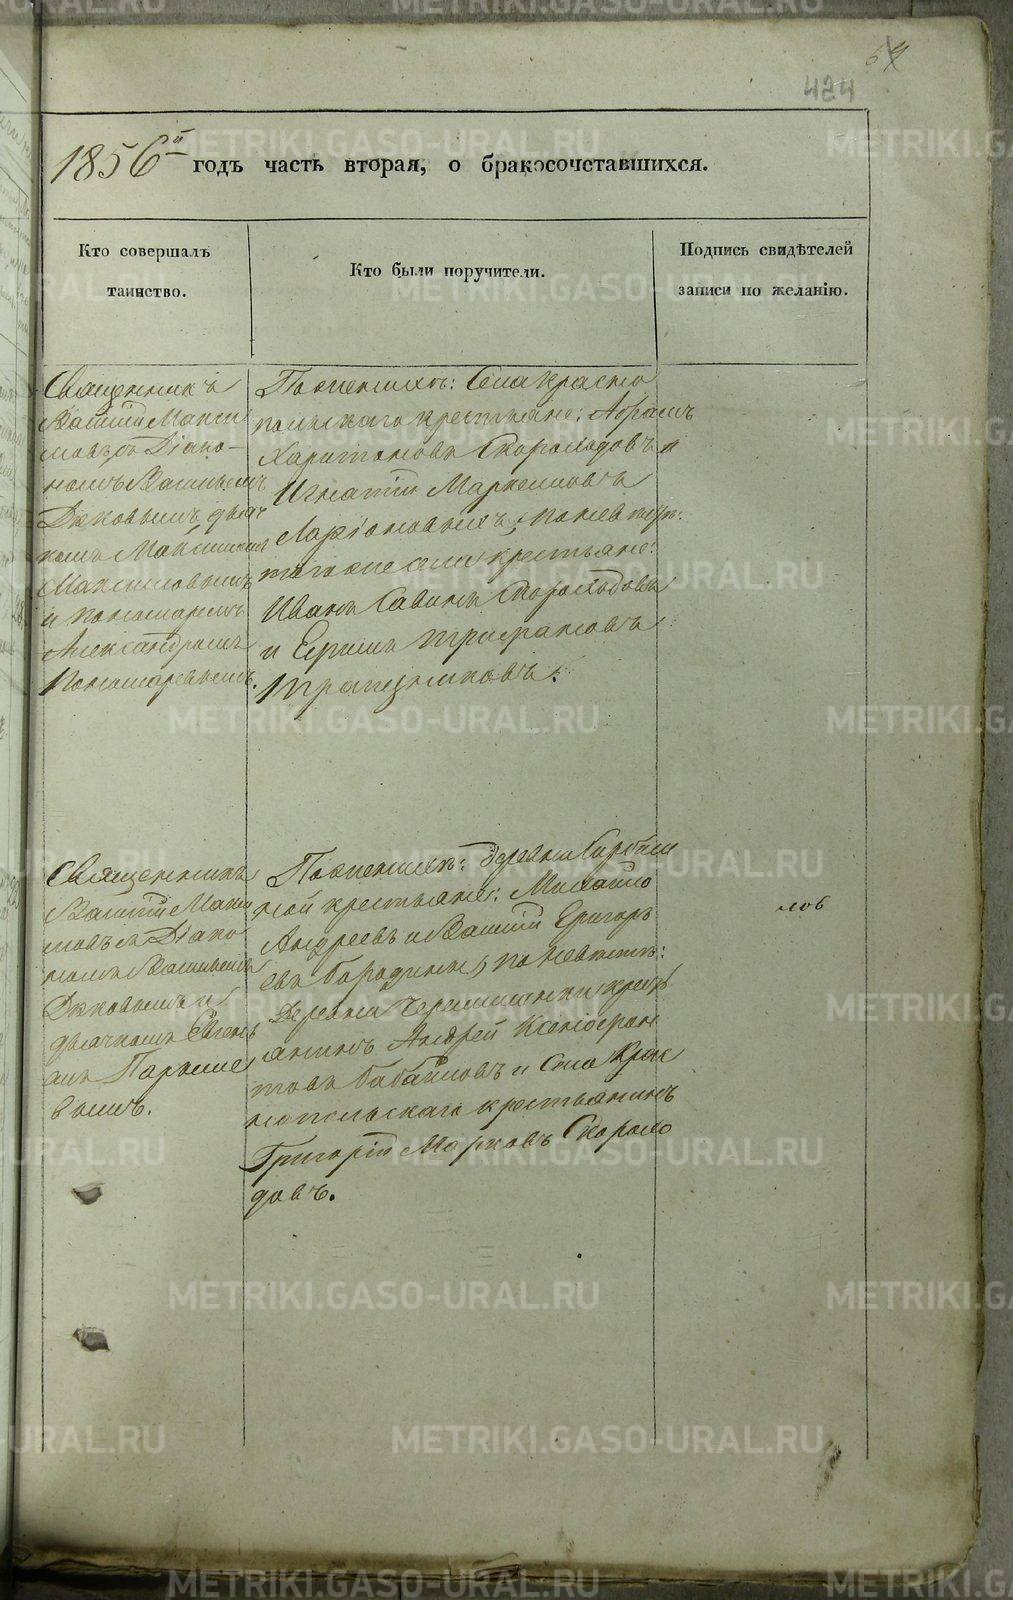 64
424
1856й годъ часть вторая, о бракосочетавшихся.
Кто совершалъ
таинство.
Кто были поручители.
Подпись свидѣтелей
записи по желанію.
Священникъ
Василій Макси
мовъ съ Діако-
номъ Васильемъ
дьяч
комъ
Максимовымъ
и пономаремъ
Александромъ
Пономаревымъ.
По женихѣ: Села Красно
польскаго крестьяне: Абрамъ
Харитоновъ Скороходовъ и
Игнатій Маркеловъ
Ларіоновыхъ, по невѣстѣ:
того же села крестьяне:
Иванъ Савинъ Скороходовъ
и Ефимъ Трифановъ
Трапезниковъ.
Священникъ
Василій Макси
мовъ съ Діако
номъ Васильемъ
и
дьячкомъ Евгень
емъ
вымъ.
По женихѣ: деревни
ной крестьяне: Михайло
Андреевъ и Василій Григорь
евъ Бородины, по невѣстѣ:
Деревни крест
янинъ Андрей Ксенофон
товъ Бабайловъ и Села Крас
нопольскаго крестьянинъ
Григорій Марковъ Скорохо
довъ.
лов
METRIKI.GASO-URAL.RU